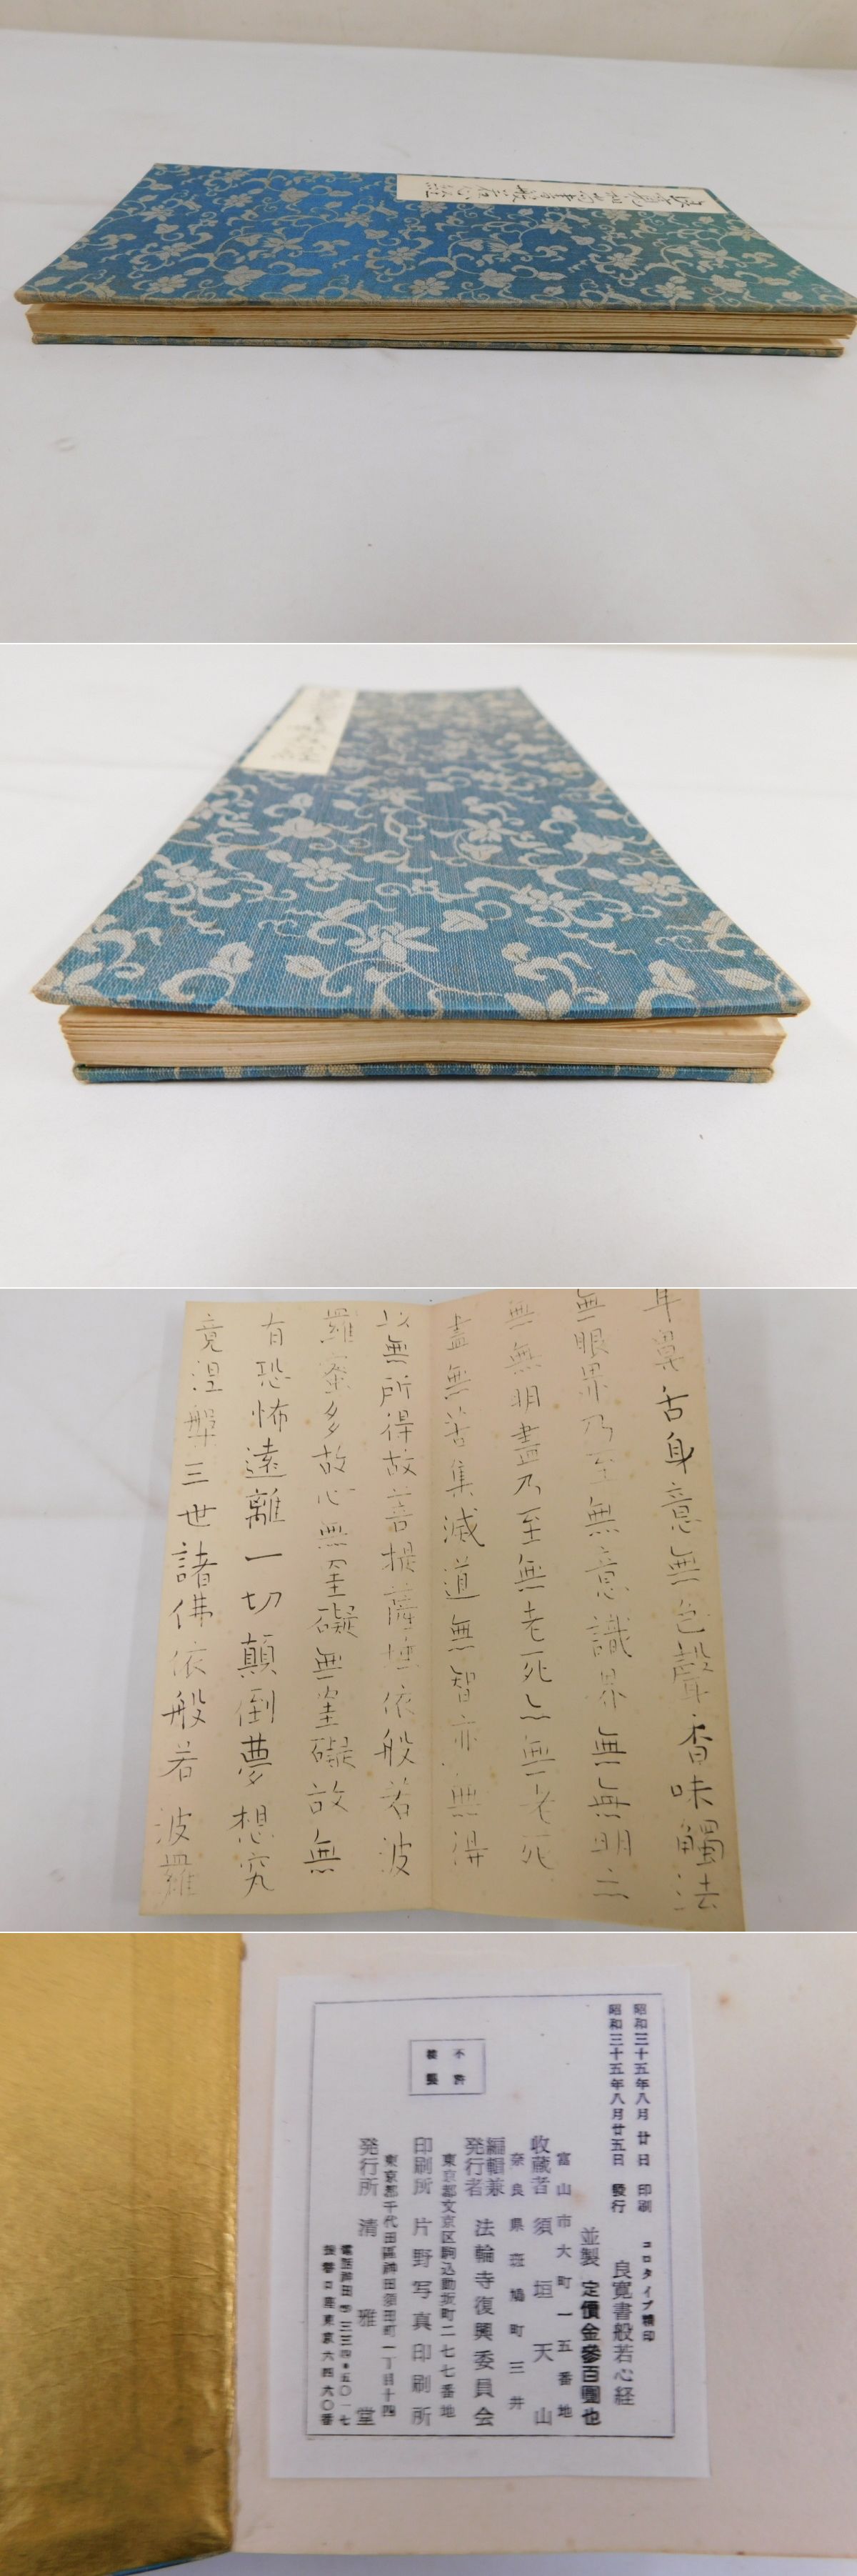 良寛和尚書般若心経
耳鼻舌身意無色聲香味觸法
無眼界乃至無意識界無無明亦
無無明盡乃至無老死亦無老死
盡無苦集滅道無智亦無得
以無所得故菩提薩埵依般若波
羅蜜多故心無罣礙無罣礙故無
有恐怖遠離一切顛倒夢想究
竟涅槃三世諸佛依般若波羅
昭和三十五年八月廿日 印刷
昭和三十五年八月廿五日 發行
コロタイプ精印
良寛書般若心経
並製 定價金參百圓也
富山市大町一五番地
收蔵者 須垣天山
奈良県斑鳩町三井
編輯兼発行者 法輪寺復興委員会
東京都文京区駒込動坂町二七七番地
印刷所 片野写真印刷所
東京都千代田區神田須田町一丁目十四
発行所 清雅堂
不許複製